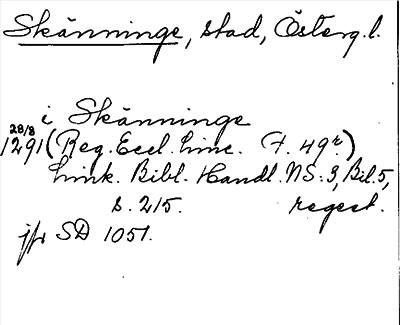 Skänninge, stad, Österg.l.
i Skänninge
28/8
1291 (Reg. Eccl. Linc. F. 49r.)
Link. Bibl. Handl. NS:3, Bil.5,
s. 215. regest.
jfr SD 1051.